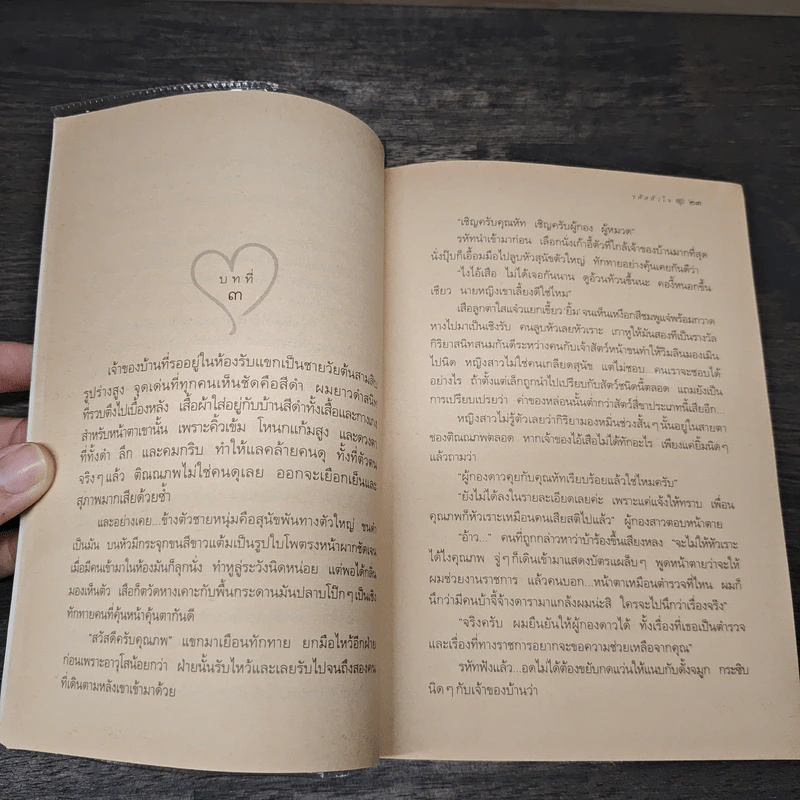 บทที่
๓
เจ้าของบ้านที่รออยู่ในห้องรับแขกเป็นชายวัยต้นสามสิบ
รูปร่างสูง จุดเด่นที่ทุกคนเห็นชัดคือสีดำ ผมยาวดำสนิท
ที่รวบตึงไปเบื้องหลัง เสื้อผ้าใส่อยู่กับบ้านสีดำทั้งเสื้อและกางเกง
สำหรับหน้าตาเขานั้น เพราะคิ้วเข้ม โหนกแก้มสูง และดวงตา
ที่ทั้งดำ ลึก และคมกริบ ทำให้แลคล้ายคนดุ ทั้งที่ตัวตน
จริงๆ แล้ว ติณณภพไม่ใช่คนดุเลย ออกจะเยือกเย็นและ
สุภาพมากเสียด้วยซ้ำ
และอย่างเคย...ข้างตัวชายหนุ่มคือสุนัขพันทางตัวใหญ่ ขนดำ
เป็นมัน บนหัวมีกระจุกขนสีขาวแต้มเป็นรูปใบโพตรงหน้าผากชัดเจน
เมื่อมีคนเข้ามาในห้องมันก็ลุกนั่ง ทำหูลู่ระวังนิดหน่อย แต่พอได้กลิ่น
มองเห็นตัว เสือก็ตวัดหางเคาะกับพื้นกระดานมันปลาบโป๊กๆ เป็นเชิง
ทักทายคนที่คุ้นหน้าคุ้นตากันดี
“สวัสดีครับคุณภพ” แขกมาเยือนทักทาย ยกมือไหว้อีกฝ่าย
ก่อนเพราะอาวุโสน้อยกว่า ฝ่ายนั้นรับไหว้และเลยรับไปจนถึงสองคน
ที่เดินตามหลังเขาเข้ามาด้วย
รหัสหัวใจ ๒๓
“เชิญครับคุณหัท เชิญครับผู้กอง ผู้หมวด”
รหัทนำเข้ามาก่อน เลือกนั่งเก้าอี้ตัวที่ใกล้เจ้าของบ้านมากที่สุด
นั่งปุ๊บก็เอื้อมมือไปลูบหัวสุนัขตัวใหญ่ ทักทายอย่างคุ้นเคยกันดีว่า
“ไงไอ้เสือ ไม่ได้เจอกันนาน ดูอ้วนท้วนขึ้นนะ คองี้หนอกขึ้น
เชียว นายหญิงเขาเลี้ยงดีใช่ไหม”
เสือลูกตาใสแจ๋วแยกเขี้ยว ‘ยิ้ม’ จนเห็นเหงือกสีชมพูแจ๋พร้อมกวาด
หางไปมาเป็นเชิงรับ คนลูบหัวเลยหัวเราะ เกาหูให้มันสองทีเป็นรางวัล
กิริยาสนิทสนมกันดีระหว่างคนกับเจ้าสัตว์หน้าขนทำให้วิมลินมองเมิน
ไปนิด หญิงสาวไม่ใช่คนเกลียดสุนัข แต่ไม่ชอบ...คนเราจะชอบได้
อย่างไร ถ้าตั้งแต่เล็กถูกนำไปเปรียบกับสัตว์ชนิดนี้ตลอด แถมยังเป็น
การเปรียบเปรยว่า ค่าของหล่อนนั้นต่ำกว่าสัตว์สี่ขาประเภทนี้เสียอีก...
หญิงสาวไม่รู้ตัวเลยว่ากิริยามองหมิ่นช่วงสั้นๆ นั้นอยู่ในสายตา
ของติณณภพตลอด หากเจ้าของไอ้เสือไม่ได้ทักอะไร เพียงแค่ยิ้มนิดๆ
แล้วถามว่า
“ผู้กองดาวคุยกับคุณหัทเรียบร้อยแล้วใช่ไหมครับ”
“ยังไม่ได้ลงในรายละเอียดเลยค่ะ เพราะแค่แจ้งให้ทราบ เพื่อน
คุณภพก็หัวเราะเหมือนคนเสียสติไปแล้ว” ผู้กองสาวตอบหน้าตาย
“อ้าว...” คนที่ถูกกล่าวหาว่าบ้าร้องขึ้นเสียงหลง “จะไม่ให้หัวเราะ
ได้ไงคุณภพ จู่ๆ ก็เดินเข้ามาแสดงบัตรแผล็บๆ พูดหน้าตายว่าจะให้
ผมช่วยงานราชการ แล้วคนบอก...หน้าตาเหมือนตำรวจที่ไหน ผมก็
นึกว่ามีคนบ้าจี้จ้างดารามาแกล้งผมน่ะสิ ใครจะไปนึกว่าเรื่องจริง”
“จริงครับ ผมยืนยันให้ผู้กองดาวได้ ทั้งเรื่องที่เธอเป็นตำรวจ
และเรื่องที่ทางราชการอยากจะขอความช่วยเหลือจากคุณ”
รหัทฟังแล้ว...อดไม่ได้ต้องขยับกดแว่นให้แนบกับดั้งจมูก กระซิบ
นิดๆ กับเจ้าของบ้านว่า